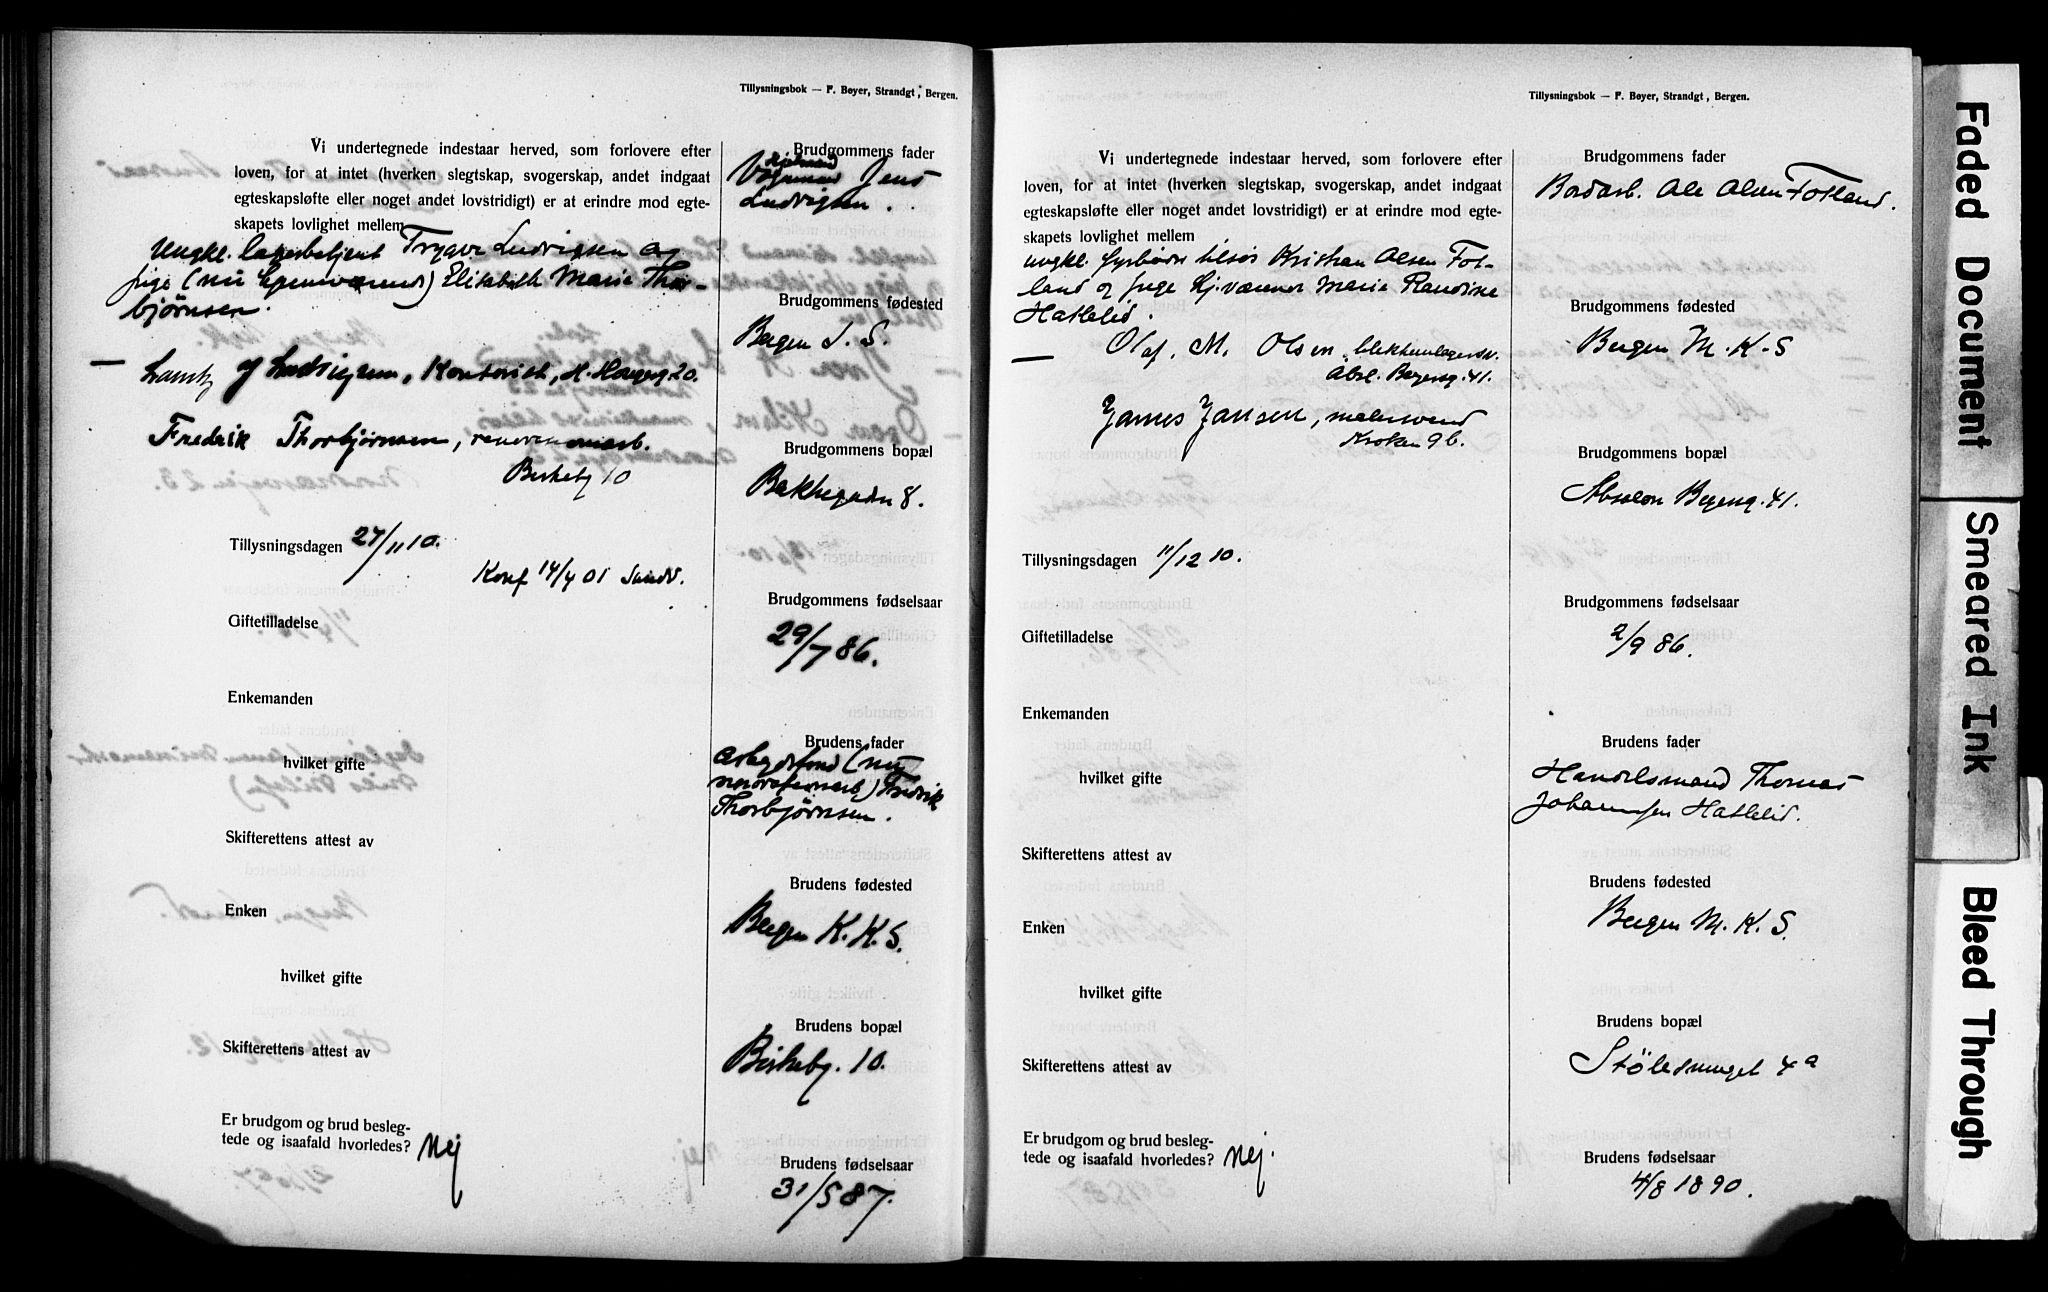 Tillysningsbok — F. Bøyer, Strandgt, Bergen.
Vi undertegnede indestaar herved, som forlovere efter
loven, for at intet (hverken slegtskap, svogerskap, andet indgaat
egteskapsløfte eller noget andet lovstridigt) er at erindre mod egte-
skapets lovlighet mellem
Ungkl. Trygve Ludvigsen og
pige (nu Elisabeth Marie Thor-
bjørnsen.
Ludvigsen, Kontorist, H. 20.
Fredrik Thorbjørnsen,
Birkebg 10
Tillysningsdagen 27/11 10.
Konf 14/4 01
Giftetilladelse
Enkemanden
hvilket gifte
Skifterettens attest av
Enken
hvilket gifte
Skifterettens attest av
Er brudgom og brud besleg-
tede og isaafald hvorledes? Nej
Brudgommens fader
Jens
Ludvigsen.
Brudgommens fødested
Bergen
Brudgommens bopæl
Bakkegaden 8.
Brudgommens fødselsaar
29/7 86.
Brudens fader
(nu
Fredrik
Thorbjørnsen.
Brudens fødested
Bergen K. K. S.
Brudens bopæl
Birkebg. 10.
Brudens fødselsaar
31/5 87.
Tillysningsbok — F. Bøyer, Strandgt, Bergen.
Vi undertegnede indestaar herved, som forlovere efter
loven, for at intet (hverken slegtskap, svogerskap, andet indgaat
egteskapsløfte eller noget andet lovstridigt) er at erindre mod egte-
skapets lovlighet mellem
Ungkl. fyrbøder tilsjøs Kristian Olsen Fot-
land og pige Marie
Hatlelid.
Olaf. M. Olsen
Absl. Beyersg. 41.
James Jansen, malersvend
Kroken 9b.
Tillysningsdagen 11/12 10.
Giftetilladelse
Enkemanden
hvilket gifte
Skifterettens attest av
Enken
hvilket gifte
Skifterettens attest av
Er brudgom og brud besleg-
tede og isaafald hvorledes? Nej.
Brudgommens fader
Bordarb. Ole Olsen Fotland.
Brudgommens fødested
Bergen M. K. S
Brudgommens bopæl
Absalon Beyersg. 41.
Brudgommens fødselsaar
2/9 86.
Brudens fader
Handelsmand Thomas
Johannesen Hatlelid.
Brudens fødested
Bergen M. K. S.
Brudens bopæl
Stølesmuget 4a
Brudens fødselsaar
4/8 1890.
Faded Document
Smeared Ink
Bleed Through